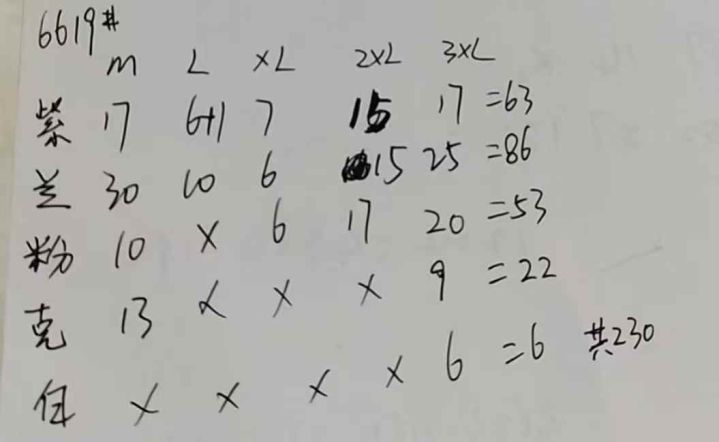 6619#
M L XL 2XL 3XL
紫 17 6+1 7 15 17 =63
兰 30 10 6 15 25 =86
粉 10 × 6 17 20 =53
克 13 × × × 9 =22
白 × × × × 6 =6 共230